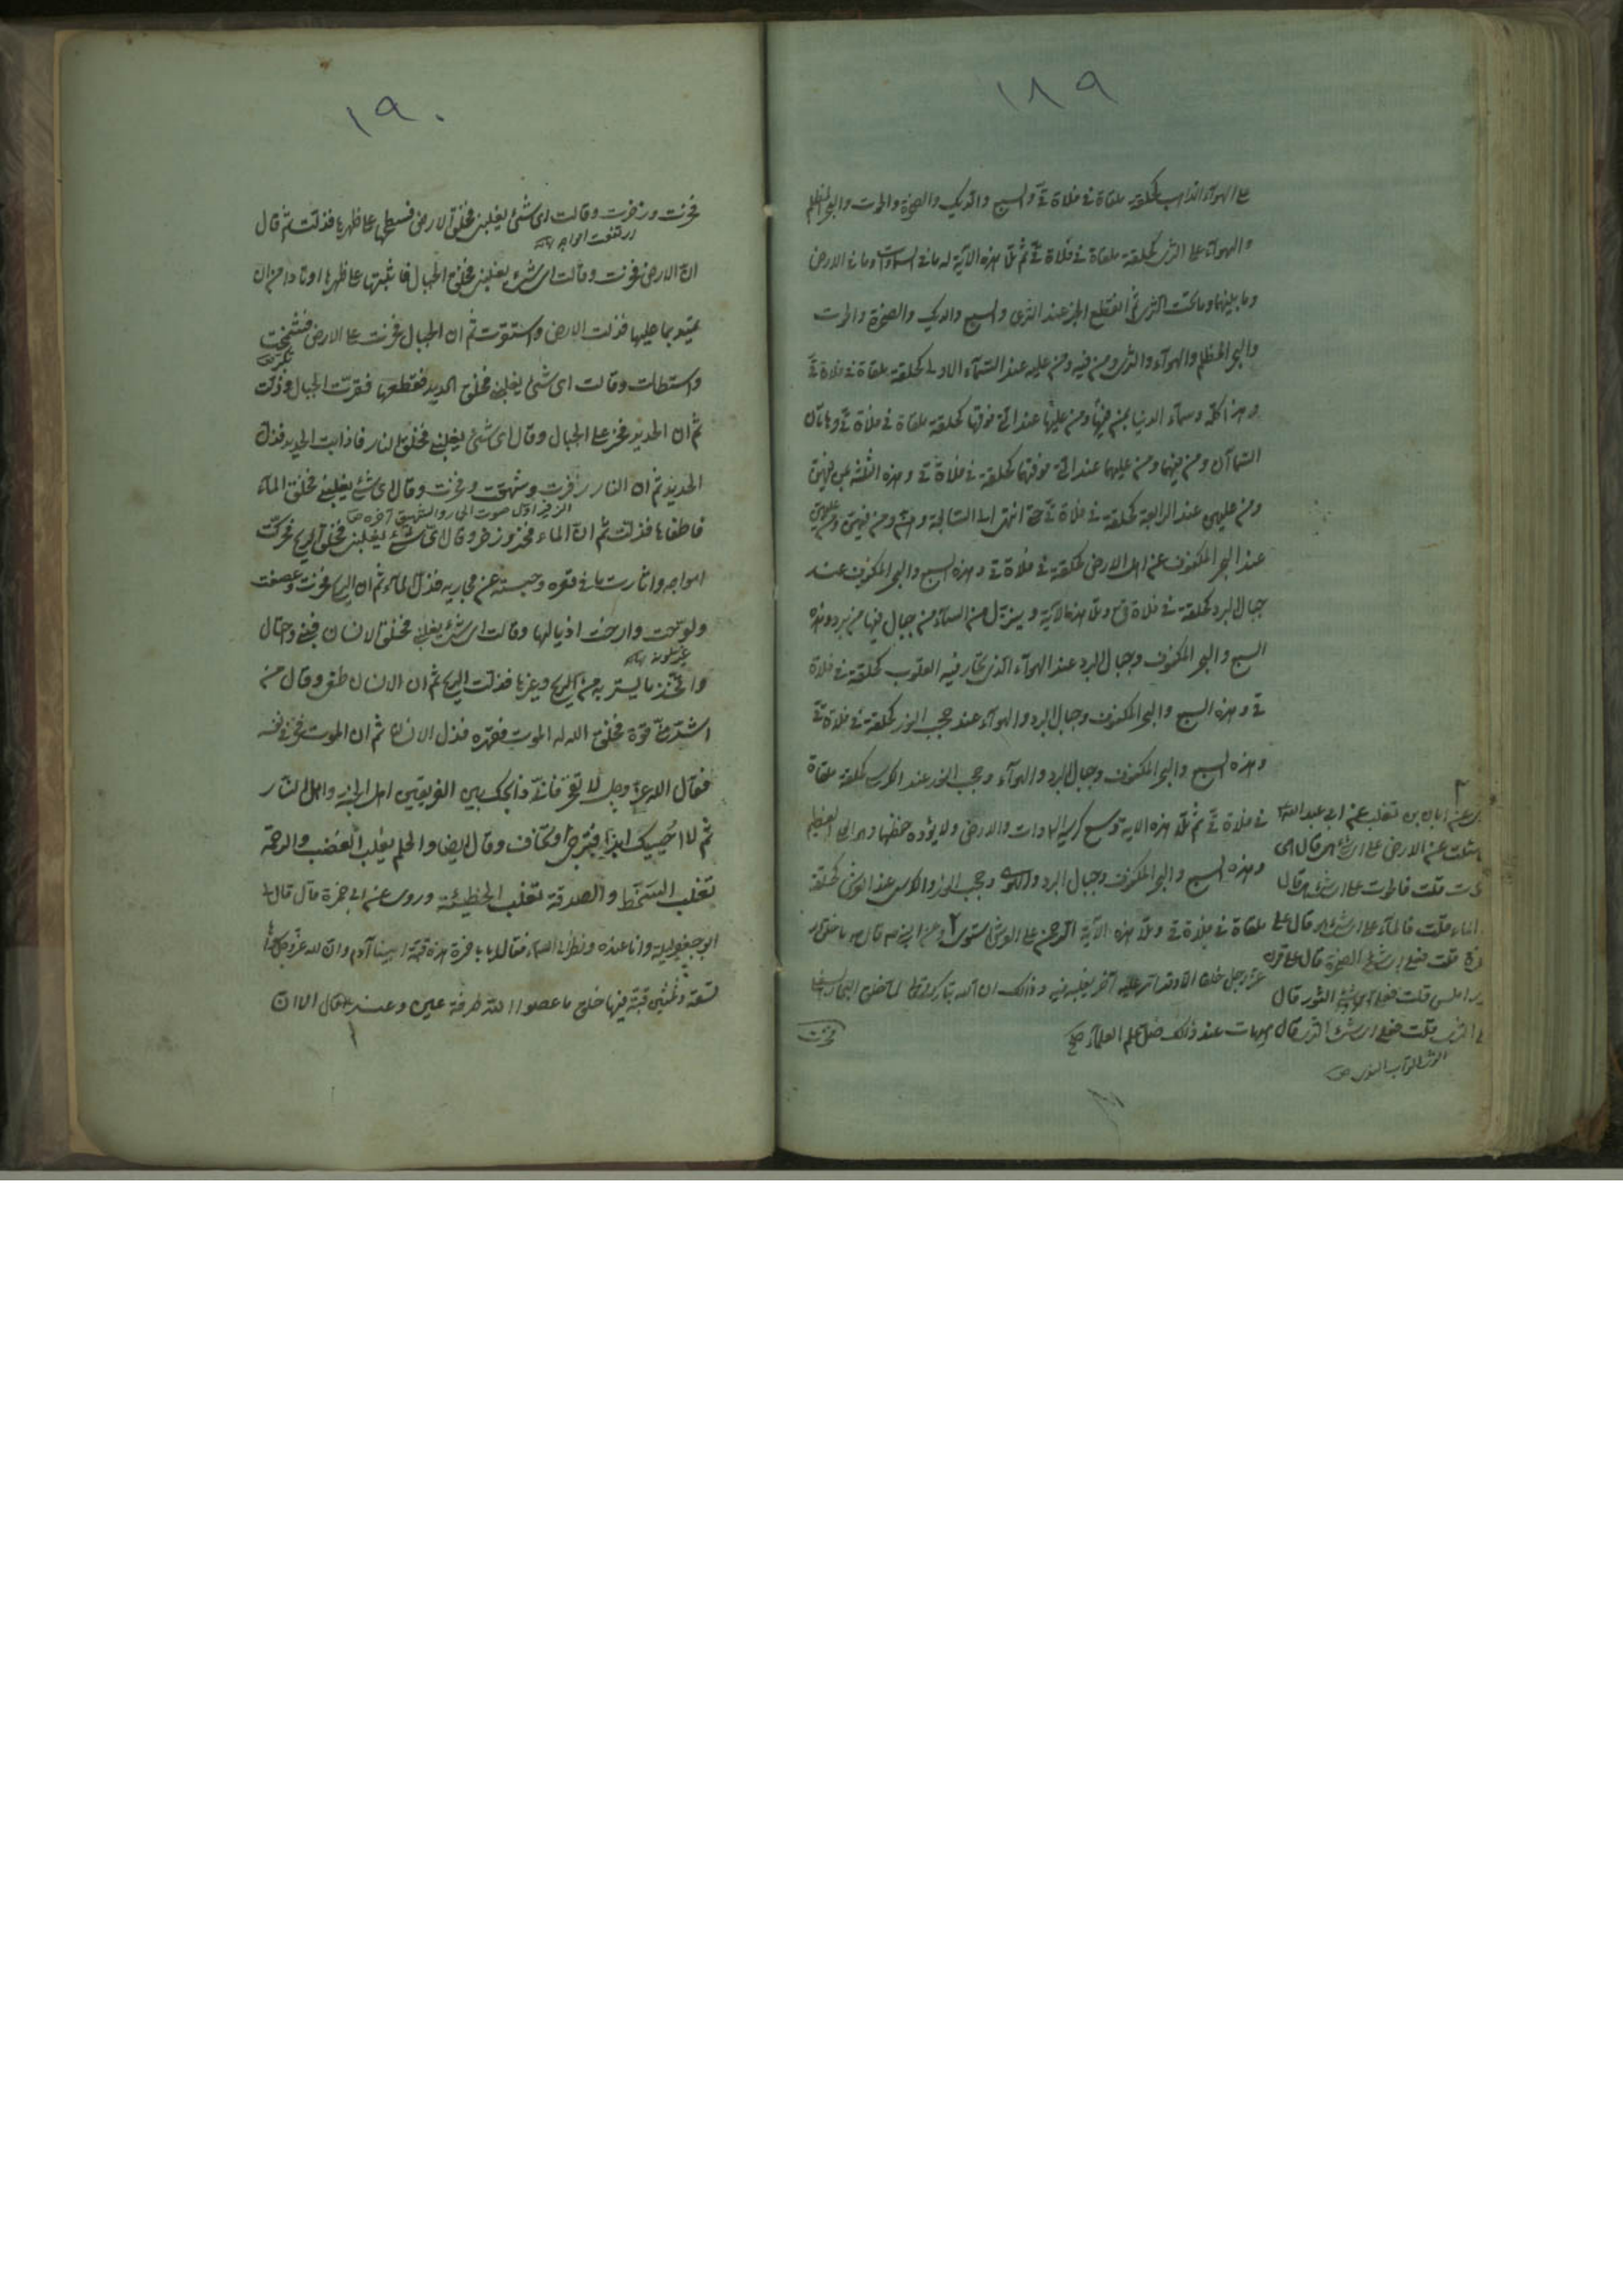 ١٨٩
على الهواء الذاهب كحلقة ملقاة في فلاة قي والسبع والديك والصخرة والحوت والبحر المظلم
والهواء على الثرى كحلقة ملقاة في فلاة قي ثم تلا هذه الآية له ما في السموات وما في الارض
وما بينهما وما تحت الثرى ثم انقطع الخبر عند الثرى والسبع والديك والصخرة والحوت
والبحر المظلم والهواء والثرى ومن فيه ومن عليه عند السماء الاولى كحلقة ملقاة في فلاة قي
وهذا كله وسماء الدنيا بمن فيها ومن عليها عند التي فوقها كحلقة ملقاة في فلاة قي وهاتان
السماآن ومن فيهما ومن عليهما عند التي فوقهما كحلقة في فلاة قي وهذه الثلثة بمن فيهن
ومن عليهن عند الرابعة كحلقة في فلاة قي حتى انتهى الى السابعة وهن ومن فيهن ومن عليهن
عند البحر المكفوف عن اهل الارض كحلقة في فلاة قي وهذه السبع والبحر المكفوف عند
جبال البرد كحلقة في فلاة قي وتلا هذه الآية وينزل من السماء من جبال فيها من برد وهذه
السبع والبحر المكفوف وجبال البرد عند الهواء الذي تحار فيه القلوب كحلقة في فلاة
قي وهذه السبع والبحر المكفوف وجبال البرد والهواء عند حجب النور كحلقة في فلاة قي
وهذه السبع والبحر المكفوف وجبال البرد والهواء وحجب النور عند الكرسي كحلقة ملقاة
في فلاة قي ثم تلا هذه الاية وسع كرسيه السموات والارض ولا يؤده حفظهما وهو العلي العظيم
وهذه السبع والبحر المكفوف وجبال البرد والهواء وحجب النور والكرسي عند العرش كحلقة
ملقاة في فلاة قي وتلا هذه الآية الرحمن على العرش استوى وعن النبي ص قال ما خلق الله
عز وجل خلقا الا وقد امر عليه آخر يغلبه فيه وذلك ان الله تبارك وتعالى لما خلق البحار السفلى
فخرت
عن ابان بن تغلب عن ابي عبد الله
سئلت عن الارض على اي شيء هي قال هي
حوت قلت فالحوت على اي شيء هو قال
الماء قلت فالماء على اي شيء هو قال على
صخرة قلت فعلى اي شيء الصخرة قال على قرن
ثور املس قلت فعلى اي شيء الثور قال
على الثرى قلت فعلى اي شيء الثرى قال هيهات عند ذلك ضل علم العلماء صح
الثرى التراب الندي ص
١٩٠
فخرت وزخرت وقالت اي شيء يغلبني فخلق الارض فسطحها على ظهرها فذلت ثم قال
اي ارتفعت امواجه
ان الارض فخرت وقالت اي شيء يغلبني فخلق الجبال فاثبتها على ظهرها اوتادا من ان
تميد بما عليها فذلت الارض واستقرت ثم ان الجبال فخرت على الارض فشمخت
تكبرت
واستطالت وقالت اي شيء يغلبني فخلق الحديد فقطعها فقرت الجبال وذلت
ثم ان الحديد فخر على الجبال وقال اي شيء يغلبني فخلق النار فاذابت الحديد فذل
الحديد ثم ان النار زفرت وشهقت وفخرت وقال اي شيء يغلبني فخلق الماء
الزفير اول صوت الحمار والشهيق آخره ص
فاطفاها فذلت ثم ان الماء فخر وزخر وقال اي شيء يغلبني فخلق الريح فحركت
امواجه واثارت ما في قعره وحبسته عن مجاريه فذل الماء ثم ان الريح فخرت وعصفت
ولوحت وارخت اذيالها وقالت اي شيء يغلبني فخلق الانسان فبنى واحتال
واتخذ ما يستر به من الريح وغيرها فذلت الريح ثم ان الانسان طغى وقال من
اشد منى قوة فخلق الله له الموت فقهره فذل الانسان ثم ان الموت فخر في نفسه
فقال الله عز وجل لا تفخر فاني ذابحك بين الفريقين اهل الجنة واهل النار
ثم لا احييك ابدا فترجى او تخاف وقال ايضا والحلم يغلب الغضب والرحمة
تغلب السخط والصدقة تغلب الخطيئة وروى عن ابي حمزة قال قال لي
ابو جعفر ليلة وانا عنده ونظر الى السماء فقال يا با حمزة هذه قبة ابينا آدم وان لله عز وجل سواها
تسعة وثلثين قبة فيها خلق ما عصوا الله طرفة عين وعنه قال ان